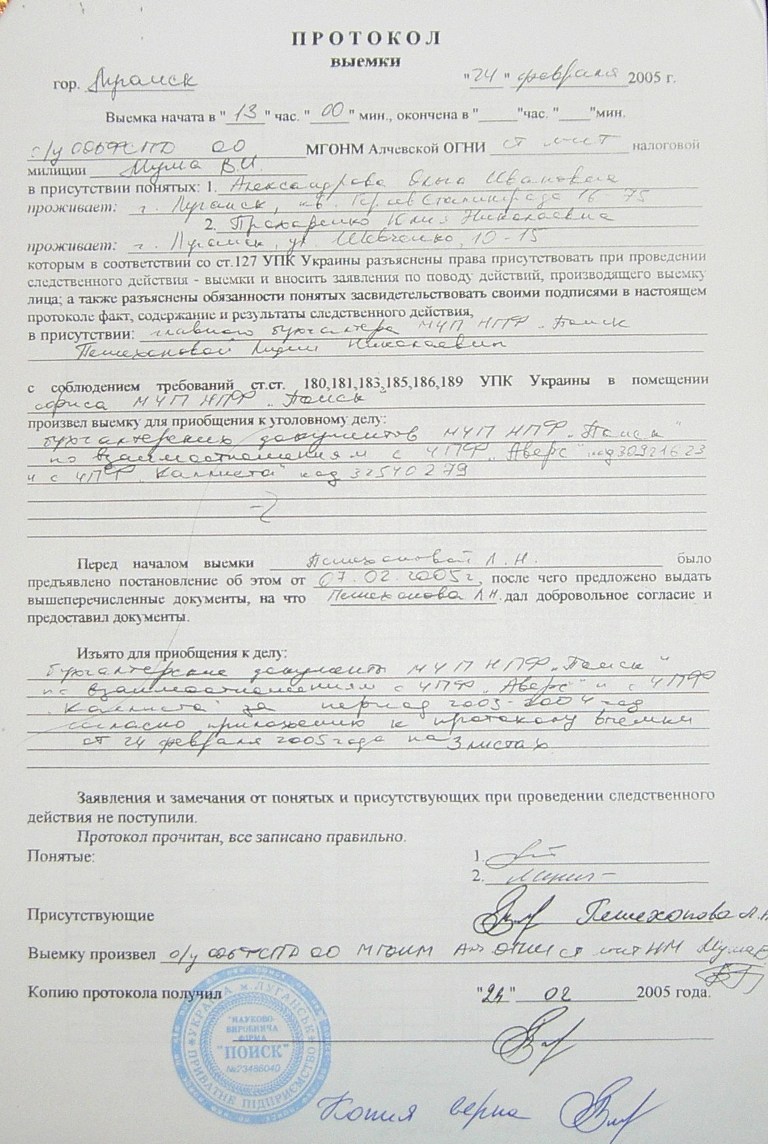 ПРОТОКОЛ
выемки
гор. Луганск "24" февраля 2005 г.
Выемка начата в "13" час. "00" мин., окончена в "____"час. "____"мин.
о/у ОБФСПД ОО МГОНМ Алчевской ОГНИ ст л-нт налоговой
милиции Мума В.И.
в присутствии понятых: 1. Александрова Ольга Ивановна
проживает: г. Луганск, кв. Героев Сталинграда 16-75
2. Прохаренко Юлия Николаевна
проживает: г. Луганск, ул. Шевченко, 10-15
которым в соответствии со ст.127 УПК Украины разъяснены права присутствовать при проведении
следственного действия - выемки и вносить заявления по поводу действий, производящего выемку
лица; а также разъяснены обязанности понятых засвидетельствовать своими подписями в настоящем
протоколе факт, содержание и результаты следственного действия,
в присутствии: главного бухгалтера МЧП НПФ „Поиск
Пешехоновой Лидии Николаевны
с соблюдением требований ст.ст. 180,181,183,185,186,189 УПК Украины в помещении
офиса МЧП НПФ „Поиск"
произвел выемку для приобщения к уголовному делу:
бухгалтерских документов МЧП НПФ „Поиск"
по взаимоотношениям с ЧПФ „Аверс" код 30921623
и с ЧПФ „Каллиста" код 32540279
Перед началом выемки Пешехоновой Л.Н. было
предъявлено постановление об этом от 07.02.2005г, после чего предложено выдать
вышеперечисленные документы, на что Пешехонова Л.Н. дал добровольное согласие и
предоставил документы.
Изъято для приобщения к делу:
бухгалтерские документы МЧП НПФ „Поиск"
по взаимоотношениям с ЧПФ „Аверс" и с ЧПФ
„Каллиста" за период 2003-2004 год
согласно приложению к протоколу выемки
от 24 февраля 2005 года на 3 листах
Заявления и замечания от понятых и присутствующих при проведении следственного
действия не поступили.
Протокол прочитан, все записано правильно.
Понятые: 1.
2.
Присутствующие Пешехонова Л.Н
Выемку произвел о/у ОБФСПД ОО МГОНМ ст л-нт НМ Мума В
Копию протокола получил "24" 02 2005 года.
УКРАЇНА м.ЛУГАНСЬК
ПРИВАТНЕ ПІДПРИЄМСТВО
"НАУКОВО-
ВИРОБНИЧА
ФІРМА
"ПОИСК"
№23486040
Копия верна